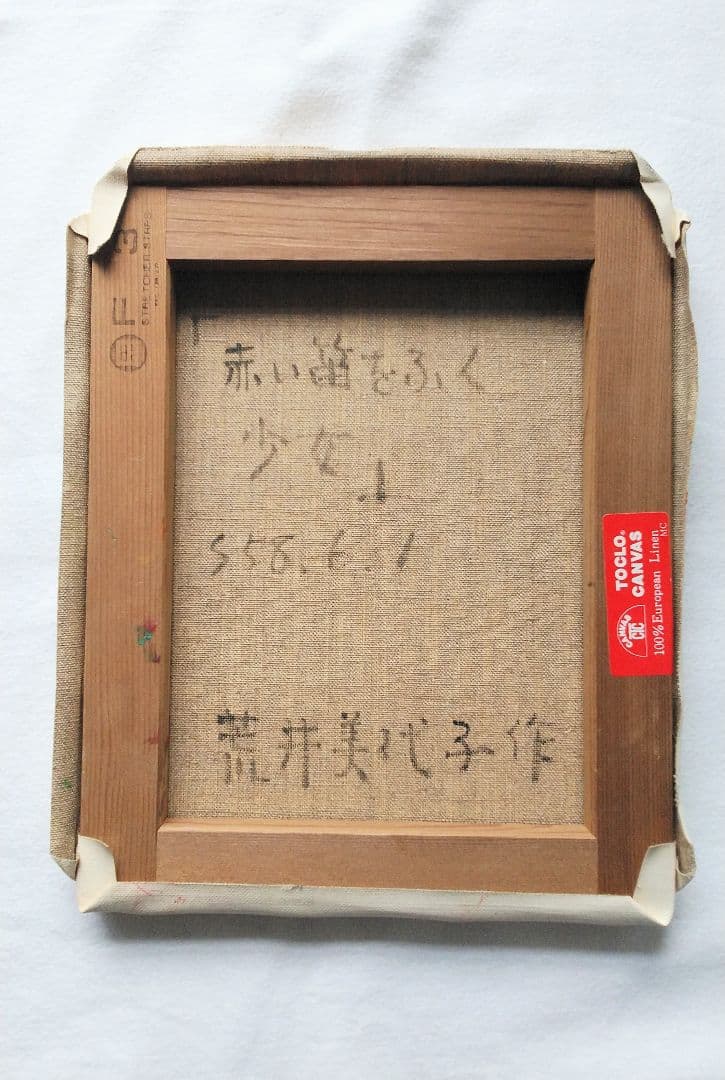 「
赤い笛をふく
少女」
S58.6 1
荒井美代子作
F 3
STRETCHER STRIPS
TOCLO®
CANVAS
100% European Linen MC
CANVAS
CIC